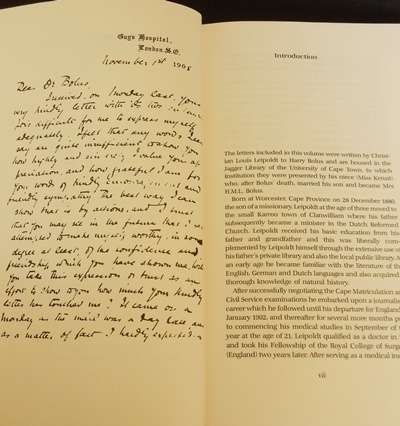 Guy's Hospital,
London. S.E.
November 1st 1908
Dear Dr Bolus,
I received, on Monday last, your
very kindly letter with
for difficult for me to express myself
adequately. I feel that any words I
say are quite insufficient to show you
how highly and sincerely I value your ap
preciation, and how grateful I am for
your words of kindly encouragement and
friendly sympathy. The best way I can
show that is by actions, and I trust
that you may see in the future that I
attempted to make myself worthy, in some
degree at least, of the confidence and
friendship which you have shown me.
you take this expression of trust as an
effort to show to you how much your kindly
letter has touched me? It came on a
Monday as the mail was a day late and
as a matter of fact I hardly expected a
Introduction
The letters included in this volume were written by Christ-
ian Louis Leipoldt to Harry Bolus and are housed in the
Jagger Library of the University of Cape Town, to which
institution they were presented by his niece (Miss Kensit)
who, after Bolus' death, married his son and became Mrs
H.M.L. Bolus.
Born at Worcester, Cape Province on 28 December 1880,
the son of a missionary, Leipoldt at the age of three moved to
the small Karroo town of Clanwilliam where his father
subsequently became a minister in the Dutch Reformed
Church. Leipoldt received his basic education from his
father and grandfather and this was liberally com-
plemented by Leipoldt himself through the use of his exten
his father's private library and also the local public library. A
an early age he became familiar with the literature of th
English, German and Dutch languages and also acquired
thorough knowledge of natural history.
After successfully negotiating the Cape Matriculation a
Civil Service examinations he embarked upon a journalis
career which he followed until his departure for England
January 1902, and thereafter for several more months p
to commencing his medical studies in September of
year at the age of 21. Leipoldt qualified as a doctor in
and took his Fellowship of the Royal College of Surge
(England) two years later. After serving as a medical in
vii